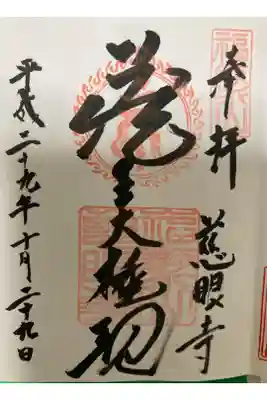 奉拝
慈眼寺
蔵王大権現
平成二十九年十月二十九日